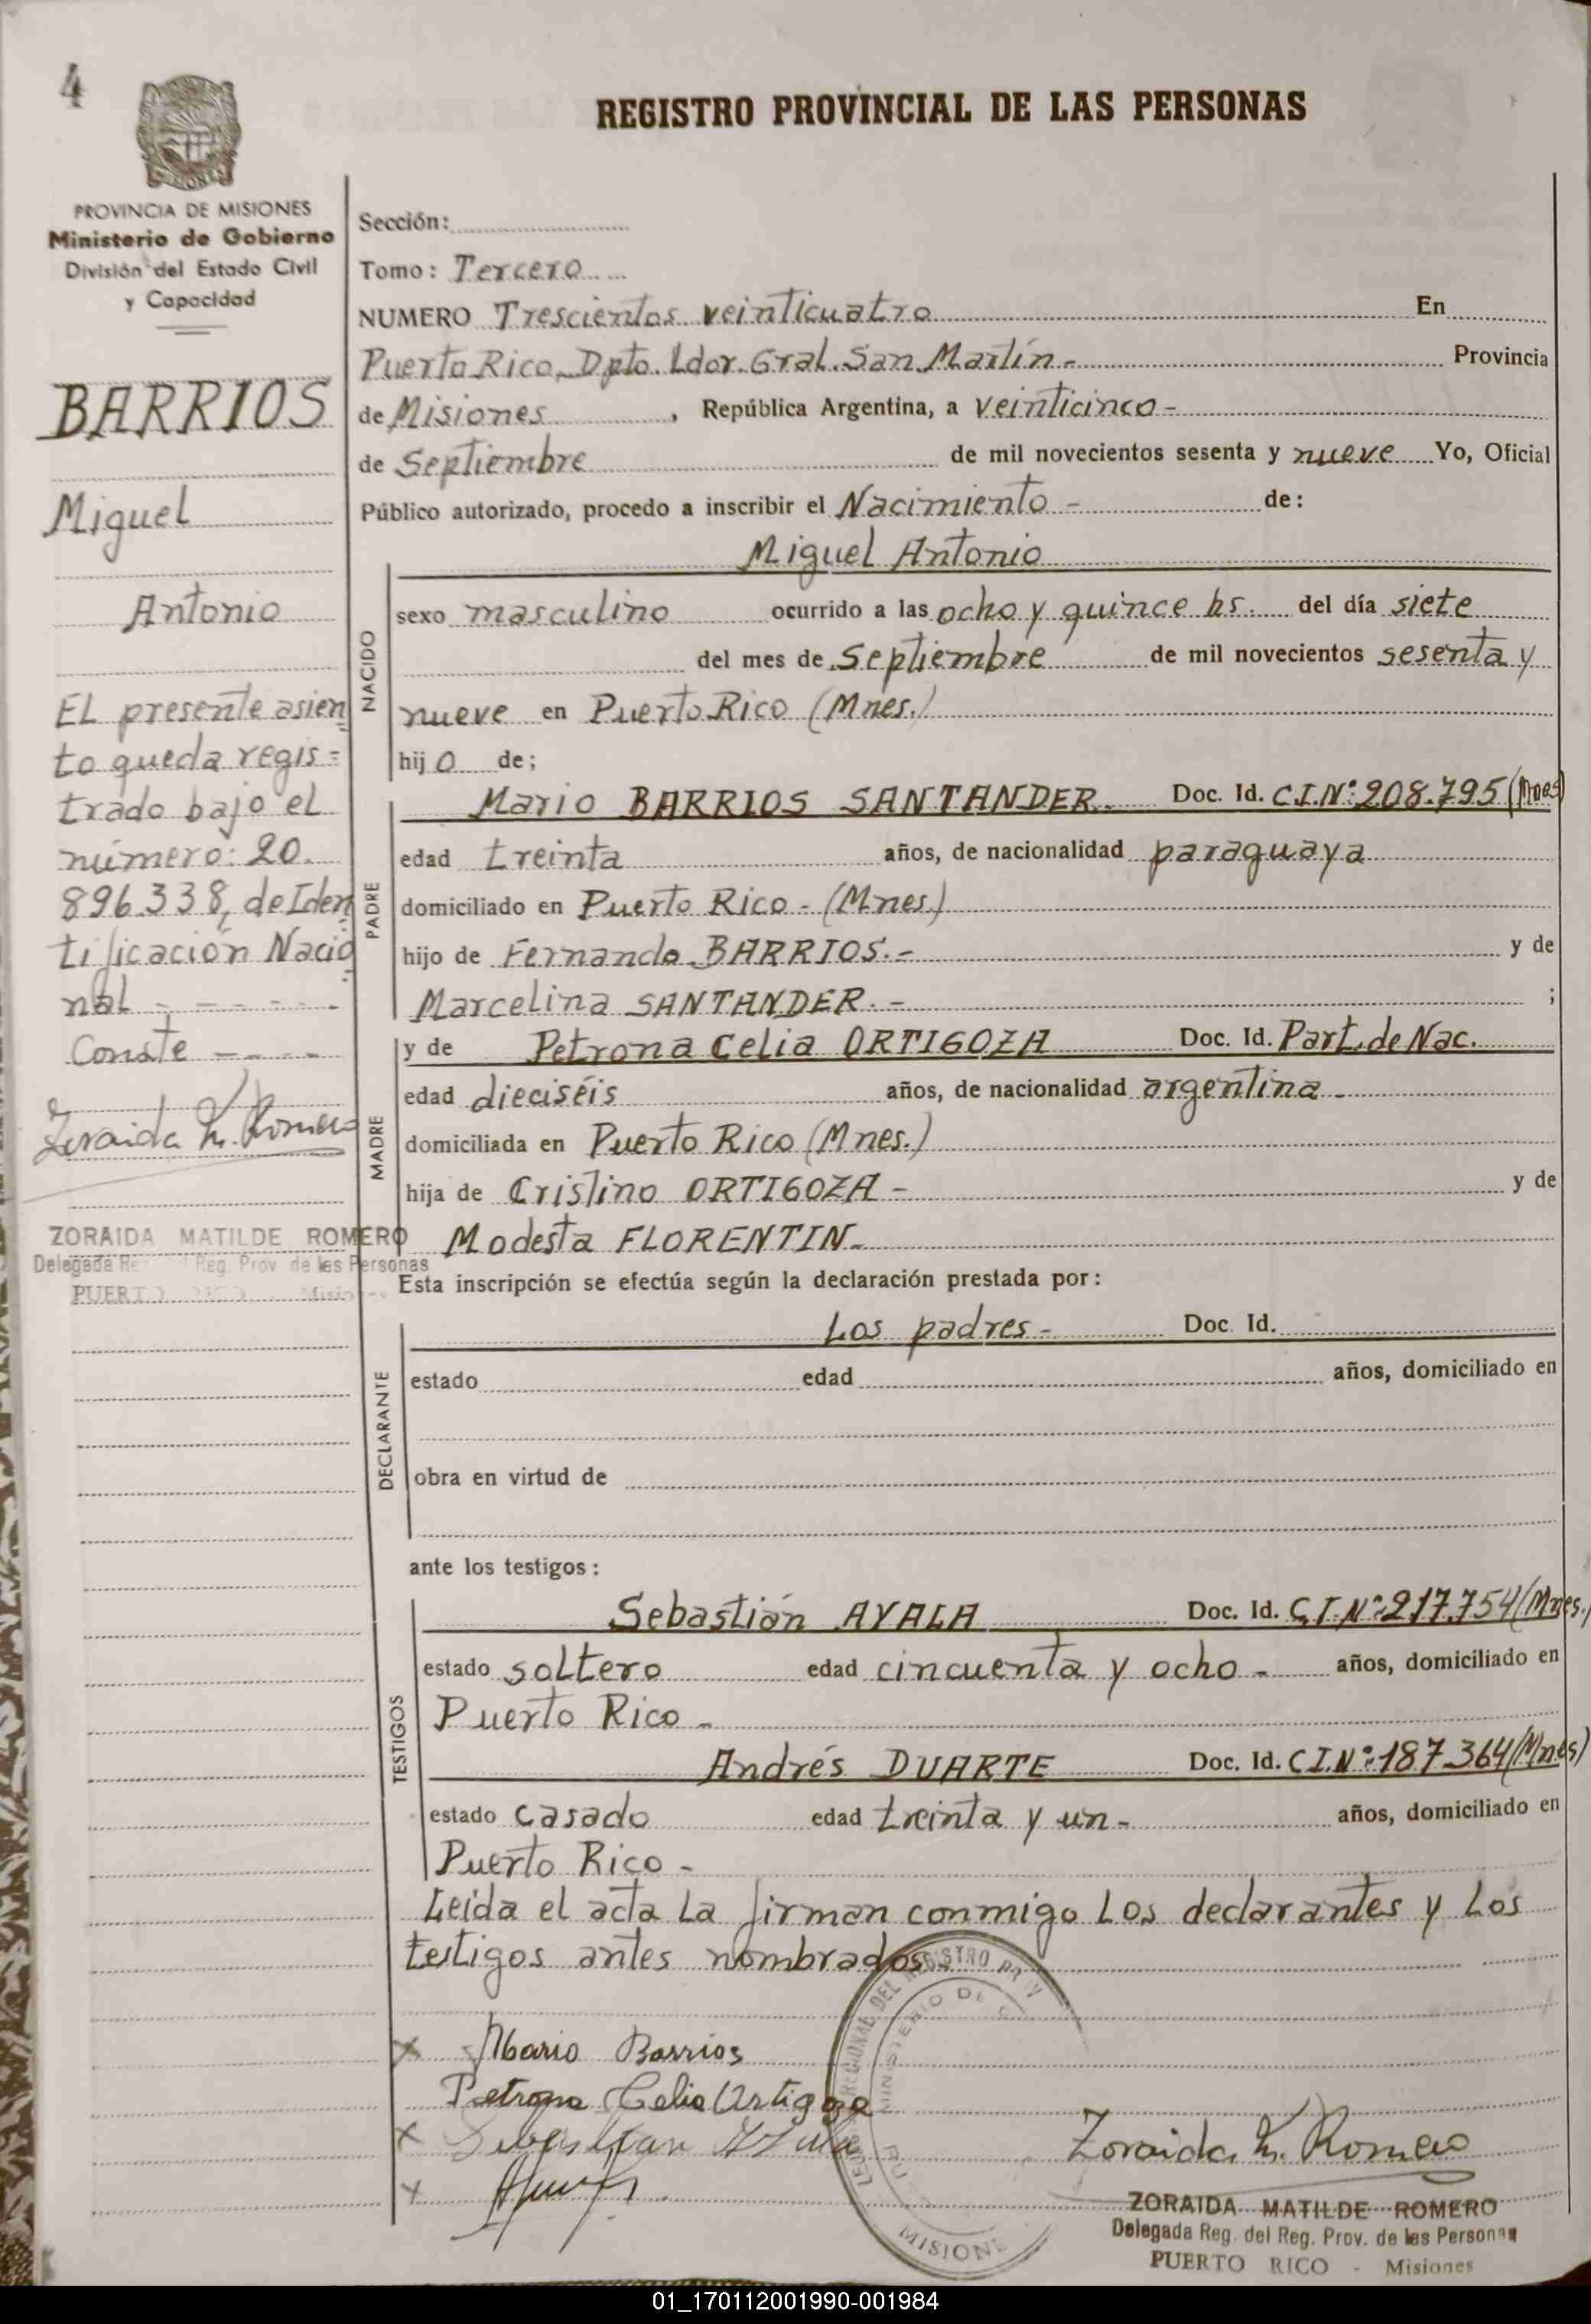 4
REGISTRO PROVINCIAL DE LAS PERSONAS
MISIONES
PROVINCIA DE MISIONES
Ministerio de Gobierno
División del Estado Civil
y Capacidad
BARRIOS
Miguel
Antonio
EL presente asien
to queda regis=
trado bajo el
número: 20.
896.338, de Iden
tificación Nacio
nal - - - - - -
Conste - - - -
Zoraida M. Romero
ZORAIDA MATILDE ROMERO
Delegada Reg. Prov. de las Personas
PUERTO RICO - Misiones
Sección:
Tomo: Tercero
NUMERO Trescientos veinticuatro En
Puerto Rico, Dpto. Ldor. Gral. San Martín - Provincia
de Misiones, República Argentina, a veinticinco -
de Septiembre de mil novecientos sesenta y nueve Yo, Oficial
Público autorizado, procedo a inscribir el Nacimiento - de:
Miguel Antonio
NACIDO
sexo masculino ocurrido a las ocho y quince hs. del día siete
del mes de Septiembre de mil novecientos sesenta y
nueve en Puerto Rico (Mnes.)
hijo de;
PADRE
Mario BARRIOS SANTANDER. Doc. Id. C.I.N°: 208.795 (Mnes)
edad treinta años, de nacionalidad paraguaya
domiciliado en Puerto Rico - (Mnes.)
hijo de Fernando BARRIOS. - y de
Marcelina SANTANDER. - ;
MADRE
y de Petrona Celia ORTIGOZA Doc. Id. Part. de Nac.
edad dieciséis años, de nacionalidad argentina -
domiciliada en Puerto Rico (Mnes.)
hija de Cristino ORTIGOZA - y de
Modesta FLORENTIN -
Esta inscripción se efectúa según la declaración prestada por:
DECLARANTE
Los padres - Doc. Id.
estado edad años, domiciliado en
obra en virtud de
ante los testigos:
TESTIGOS
Sebastián AYALA Doc. Id. C.I.N°: 217.754 (Mnes.)
estado soltero edad cincuenta y ocho - años, domiciliado en
Puerto Rico -
Andrés DUARTE Doc. Id. C.I.N°: 187.364 (Mnes)
estado casado edad treinta y un - años, domiciliado en
Puerto Rico -
Leída el acta la firman conmigo los declarantes y los
testigos antes nombrados
Mario Barrios
Petrona Celia Ortigoza
Sebastian Ayala
REGIONAL DEL REGISTRO PROV
MINISTERIO DE
MISIONE
Zoraida M. Romero
ZORAIDA MATILDE ROMERO
Delegada Reg. del Reg. Prov. de las Personas
PUERTO RICO - Misiones
01_170112001990-001984